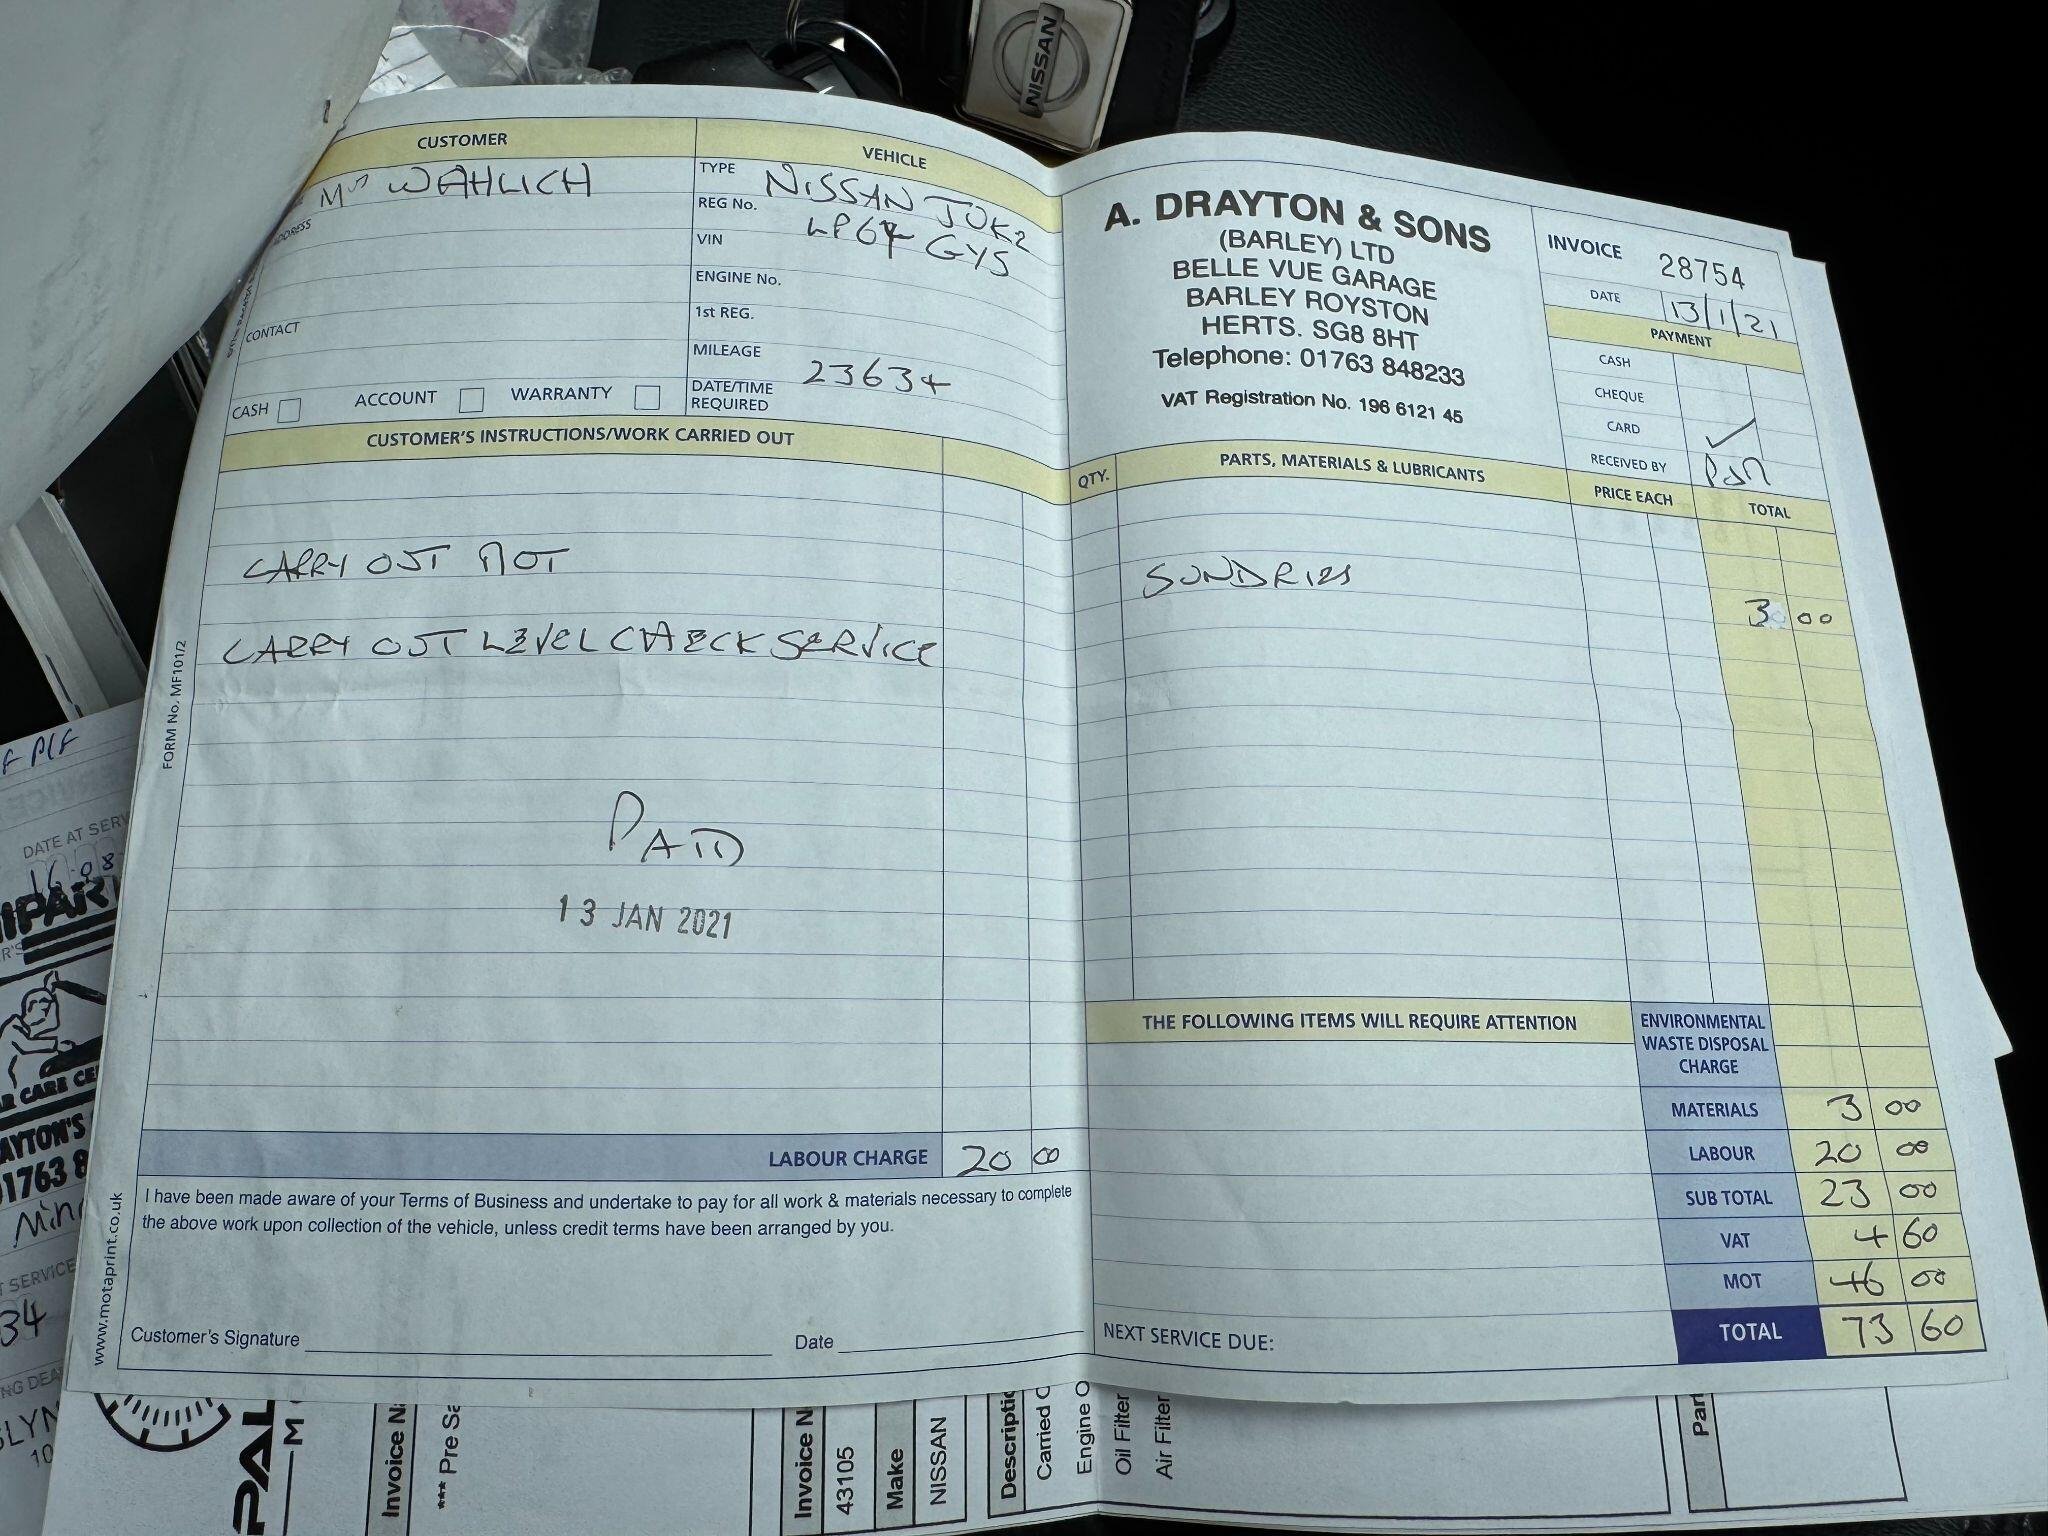 NISSAN
CUSTOMER
Mrs WAHLICH
ADDRESS
CONTACT
CASH ACCOUNT WARRANTY
VEHICLE
TYPE NISSAN JUKE
REG No. LP64 GYS
VIN
ENGINE No.
1st REG.
MILEAGE 23634
DATE/TIME
REQUIRED
CUSTOMER'S INSTRUCTIONS/WORK CARRIED OUT
CARRY OUT MOT
CARRY OUT LEVEL CHECK SERVICE
PAID
13 JAN 2021
LABOUR CHARGE 20 00
I have been made aware of your Terms of Business and undertake to pay for all work & materials necessary to complete
the above work upon collection of the vehicle, unless credit terms have been arranged by you.
Customer's Signature Date
FORM No. MF101/2
www.motaprint.co.uk
A. DRAYTON & SONS
(BARLEY) LTD
BELLE VUE GARAGE
BARLEY ROYSTON
HERTS. SG8 8HT
Telephone: 01763 848233
VAT Registration No. 196 6121 45
INVOICE 28754
DATE 13/1/21
PAYMENT
CASH
CHEQUE
CARD ✓
RECEIVED BY
QTY. PARTS, MATERIALS & LUBRICANTS PRICE EACH TOTAL
SUNDRIES 3 00
THE FOLLOWING ITEMS WILL REQUIRE ATTENTION
ENVIRONMENTAL
WASTE DISPOSAL
CHARGE
MATERIALS 3 00
LABOUR 20 00
SUB TOTAL 23 00
VAT 4 60
MOT 46 00
TOTAL 73 60
NEXT SERVICE DUE:
DATE AT SERV
16 08
R CARE CE
AYTON'S
01763 8
SERVICE
34
PAL
Invoice N
*** Pre Sa
Invoice N
43105
Make
NISSAN
Descriptio
Carried O
Engine O
Oil Filter
Air Filter
Par